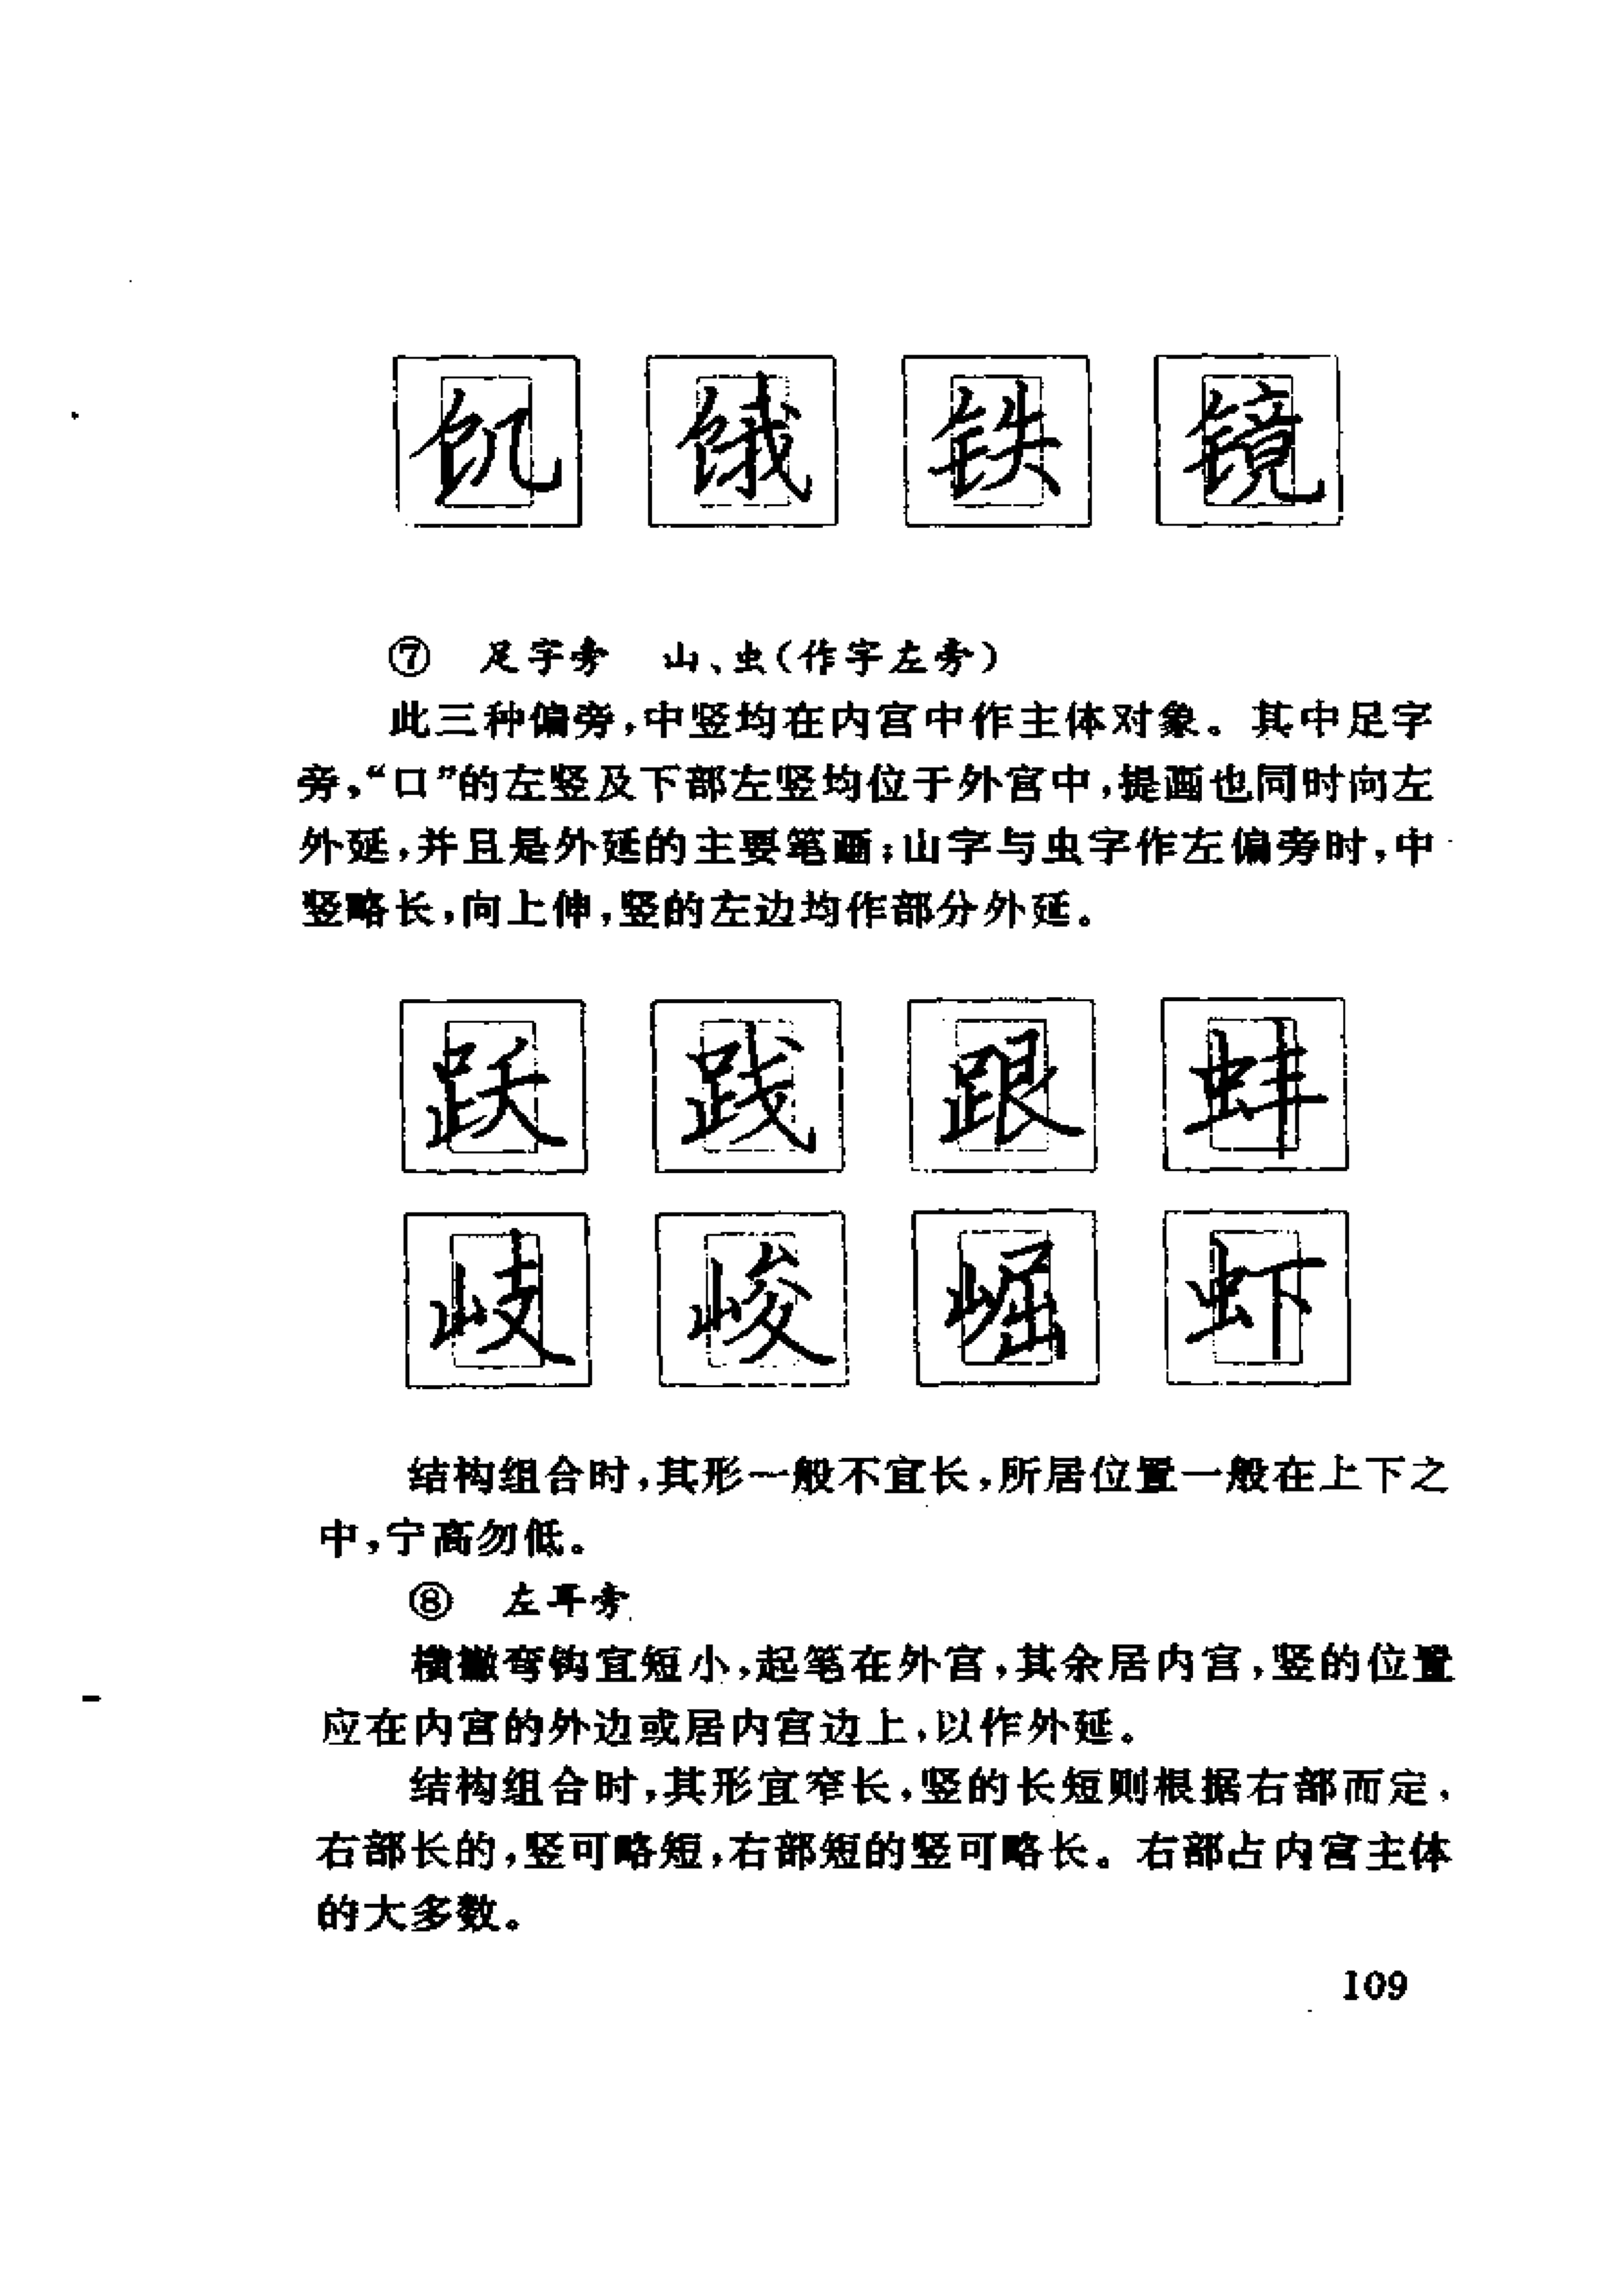 饥 饿 铁 镜
⑦ 足字旁 山、虫(作字左旁)
此三种偏旁,中竖均在内宫中作主体对象。其中足字
旁,“口”的左竖及下部左竖均位于外宫中,提画也同时向左
外延,并且是外延的主要笔画;山字与虫字作左偏旁时,中
竖略长,向上伸,竖的左边均作部分外延。
跃 践 跟 蚌
岐 峻 崛 虾
结构组合时,其形一般不宜长,所居位置一般在上下之
中,宁高勿低。
⑧ 左耳旁
横撇弯钩宜短小,起笔在外宫,其余居内宫,竖的位置
应在内宫的外边或居内宫边上,以作外延。
结构组合时,其形宜窄长,竖的长短则根据右部而定,
右部长的,竖可略短,右部短的竖可略长。右部占内宫主体
的大多数。
109